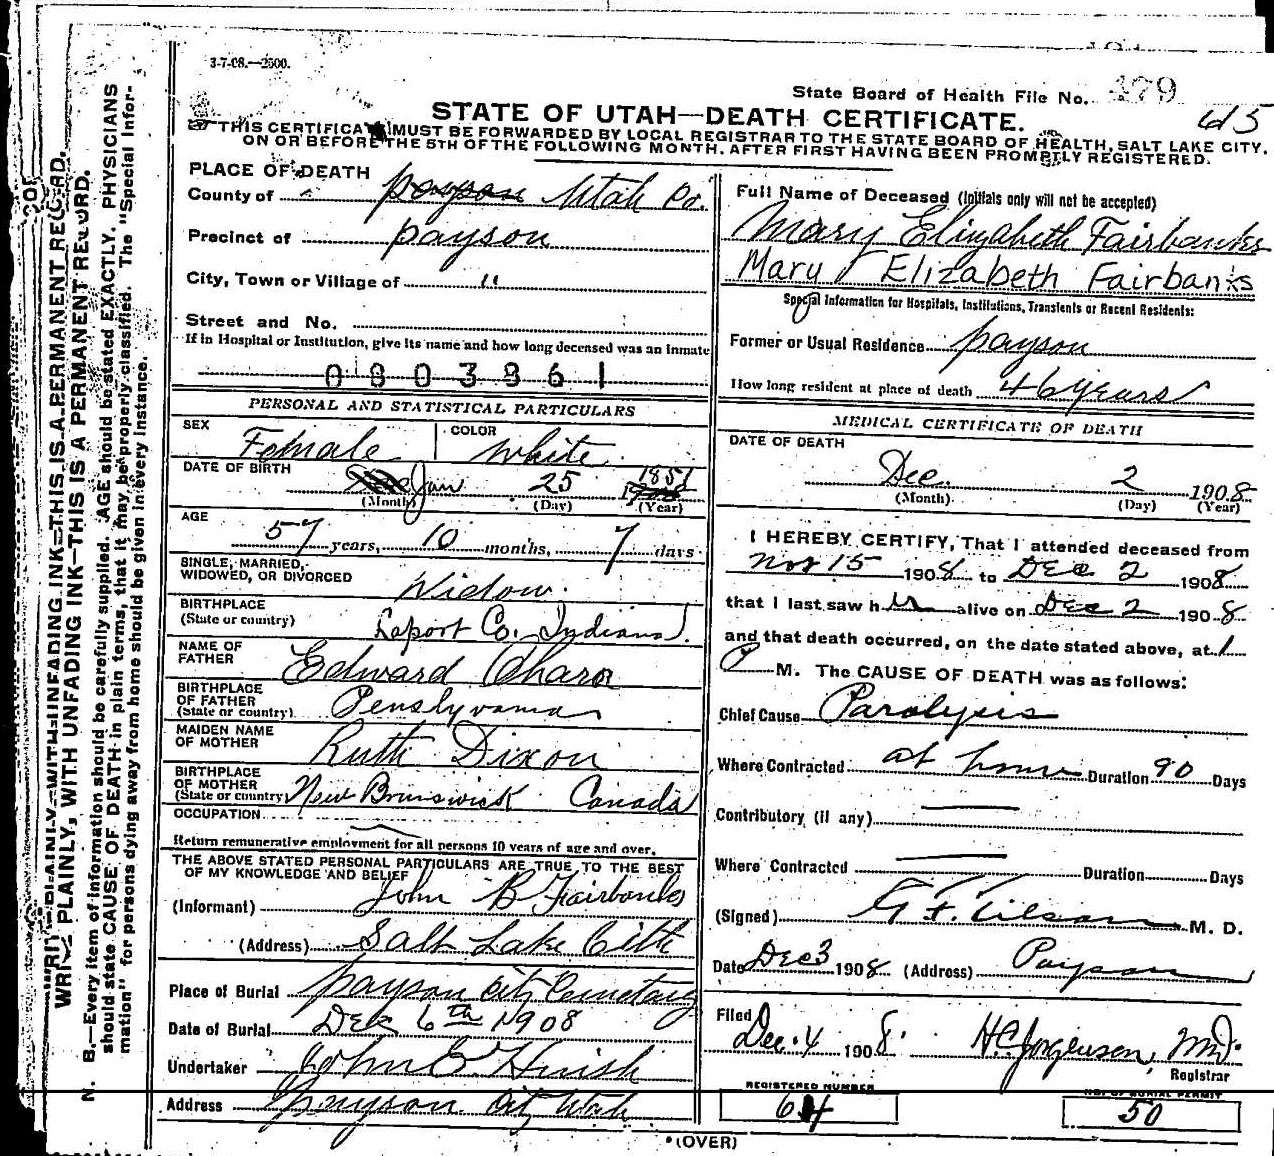 3-7-08.—2500.
State Board of Health File No. 479
STATE OF UTAH—DEATH CERTIFICATE.
615
THIS CERTIFICATE MUST BE FORWARDED BY LOCAL REGISTRAR TO THE STATE BOARD OF HEALTH, SALT LAKE CITY,
ON OR BEFORE THE 5TH OF THE FOLLOWING MONTH. AFTER FIRST HAVING BEEN PROMPTLY REGISTERED.
PLACE OF DEATH
County of payson Utah Co.
Precinct of payson
City, Town or Village of "
Street and No.
If in Hospital or Institution, give its name and how long deceased was an inmate
0803861
PERSONAL AND STATISTICAL PARTICULARS
SEX Female COLOR white
DATE OF BIRTH Jan 25 1851
(Month) (Day) (Year)
AGE
57 years, 10 months, 7 days
SINGLE, MARRIED,
WIDOWED, OR DIVORCED Widow.
BIRTHPLACE
(State or country) Laport Co. Indiana.
NAME OF
FATHER Edward
BIRTHPLACE
OF FATHER
(State or country) Penslyvania
MAIDEN NAME
OF MOTHER Ruth Dixon
BIRTHPLACE
OF MOTHER
(State or country) New Brunswick Canada
OCCUPATION
Return remunerative employment for all persons 10 years of age and over.
THE ABOVE STATED PERSONAL PARTICULARS ARE TRUE TO THE BEST
OF MY KNOWLEDGE AND BELIEF
(Informant) John B Fairbanks
(Address) Salt Lake City
Place of Burial payson City Cemetary
Date of Burial Dec 6th 1908
Undertaker John E. Huish
Address payson City Utah
Full Name of Deceased (Initials only will not be accepted)
Mary Elizabeth Fairbanks
Mary Elizabeth Fairbanks
Special Information for Hospitals, Institutions, Transients or Recent Residents:
Former or Usual Residence payson
How long resident at place of death 46 years
MEDICAL CERTIFICATE OF DEATH
DATE OF DEATH
Dec 2 1908
(Month) (Day) (Year)
I HEREBY CERTIFY, That I attended deceased from
Nov 15 1908 to Dec 2 1908
that I last saw her alive on Dec 2 1908
and that death occurred, on the date stated above, at 1
P M. The CAUSE OF DEATH was as follows:
Chief Cause Paralysis
Where Contracted at home Duration 90 Days
Contributory (if any)
Where Contracted Duration Days
(Signed) M. D.
Date Dec 3 1908 (Address) Payson
Filed
Dec. 4 1908. HC Jorgensen, M.D.
Registrar
REGISTERED NUMBER
64
NO. OF BURIAL PERMIT
50
(OVER)
WRITE PLAINLY, WITH UNFADING INK—THIS IS A PERMANENT RECORD.
WRITE PLAINLY, WITH UNFADING INK—THIS IS A PERMANENT RECORD.
N. B.—Every item of information should be carefully supplied. AGE should be stated EXACTLY. PHYSICIANS
should state CAUSE OF DEATH in plain terms, that it may be properly classified. The "Special Infor-
mation" for persons dying away from home should be given in every instance.